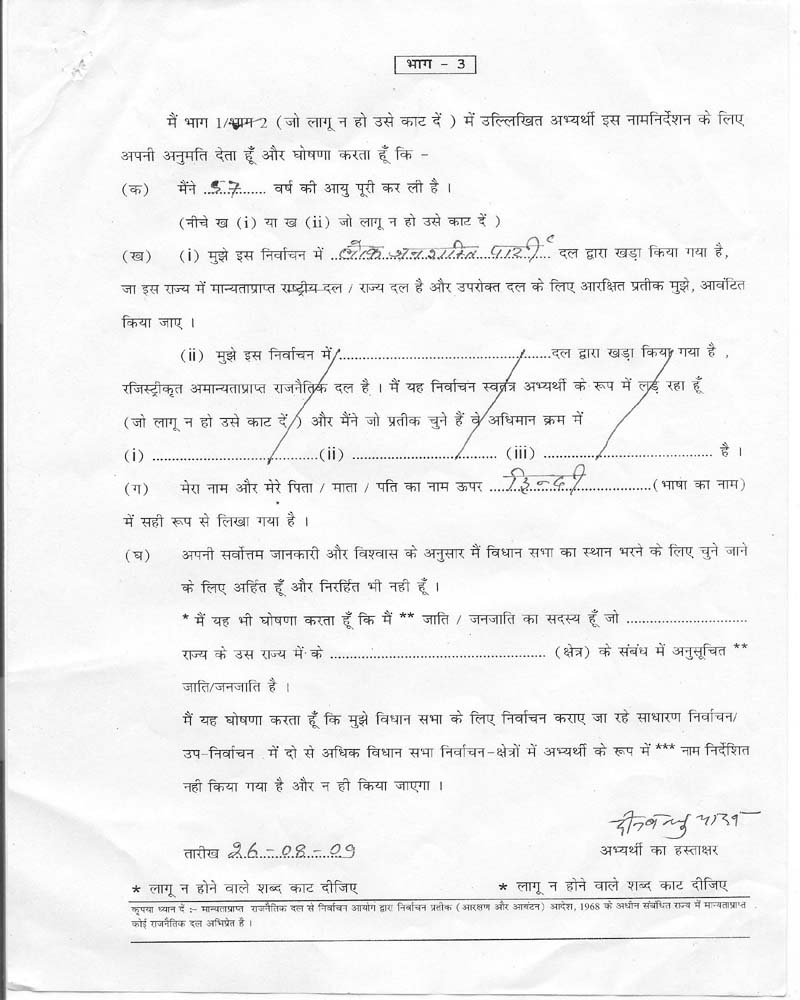 भाग - 3
मैं भाग 1/भाग 2 (जो लागू न हो उसे काट दें ) में उल्लिखित अभ्यर्थी इस नामनिर्देशन के लिए
अपनी अनुमति देता हूँ और घोषणा करता हूँ कि -
(क) मैंने 57 वर्ष की आयु पूरी कर ली है ।
(नीचे ख (i) या ख (ii) जो लागू न हो उसे काट दें )
(ख) (i) मुझे इस निर्वाचन में ..लोक जनशक्ति पार्टी.. दल द्वारा खड़ा किया गया है,
जा इस राज्य में मान्यताप्राप्त राष्ट्रीय दल / राज्य दल है और उपरोक्त दल के लिए आरक्षित प्रतीक मुझे, आवंटित
किया जाए ।
(ii) मुझे इस निर्वाचन में ........................................दल द्वारा खड़ा किया गया है ,
रजिस्ट्रीकृत अमान्यताप्राप्त राजनैतिक दल है । मैं यह निर्वाचन स्वतंत्र अभ्यर्थी के रूप में लड़ रहा हूँ
(जो लागू न हो उसे काट दें ) और मैंने जो प्रतीक चुने हैं वे अधिमान क्रम में
(i) ................................(ii) ........................... (iii) ...................................... है ।
(ग) मेरा नाम और मेरे पिता / माता / पति का नाम ऊपर ...हिन्दी.................(भाषा का नाम)
में सही रूप से लिखा गया है ।
(घ) अपनी सर्वोत्तम जानकारी और विश्वास के अनुसार मैं विधान सभा का स्थान भरने के लिए चुने जाने
के लिए अर्हित हूँ और निरर्हित भी नही हूँ ।
* मैं यह भी घोषणा करता हूँ कि मैं ** जाति / जनजाति का सदस्य हूँ जो ..............................
राज्य के उस राज्य में के ...................................................... (क्षेत्र) के संबंध में अनुसूचित **
जाति/जनजाति है ।
मैं यह घोषणा करता हूँ कि मुझे विधान सभा के लिए निर्वाचन कराए जा रहे साधारण निर्वाचन/
उप-निर्वाचन में दो से अधिक विधान सभा निर्वाचन-क्षेत्रों में अभ्यर्थी के रूप में *** नाम निर्देशित
नही किया गया है और न ही किया जाएगा ।
दीनबन्धु यादव
तारीख 26-08-09 अभ्यर्थी का हस्ताक्षर
* लागू न होने वाले शब्द काट दीजिए * लागू न होने वाले शब्द काट दीजिए
कृपया ध्यान दें :- मान्यताप्राप्त राजनैतिक दल से निर्वाचन आयोग द्वारा निर्वाचन प्रतीक (आरक्षण और आवंटन) आदेश, 1968 के अधीन संबंधित राज्य में मान्यताप्राप्त
कोई राजनैतिक दल अभिप्रेत है ।